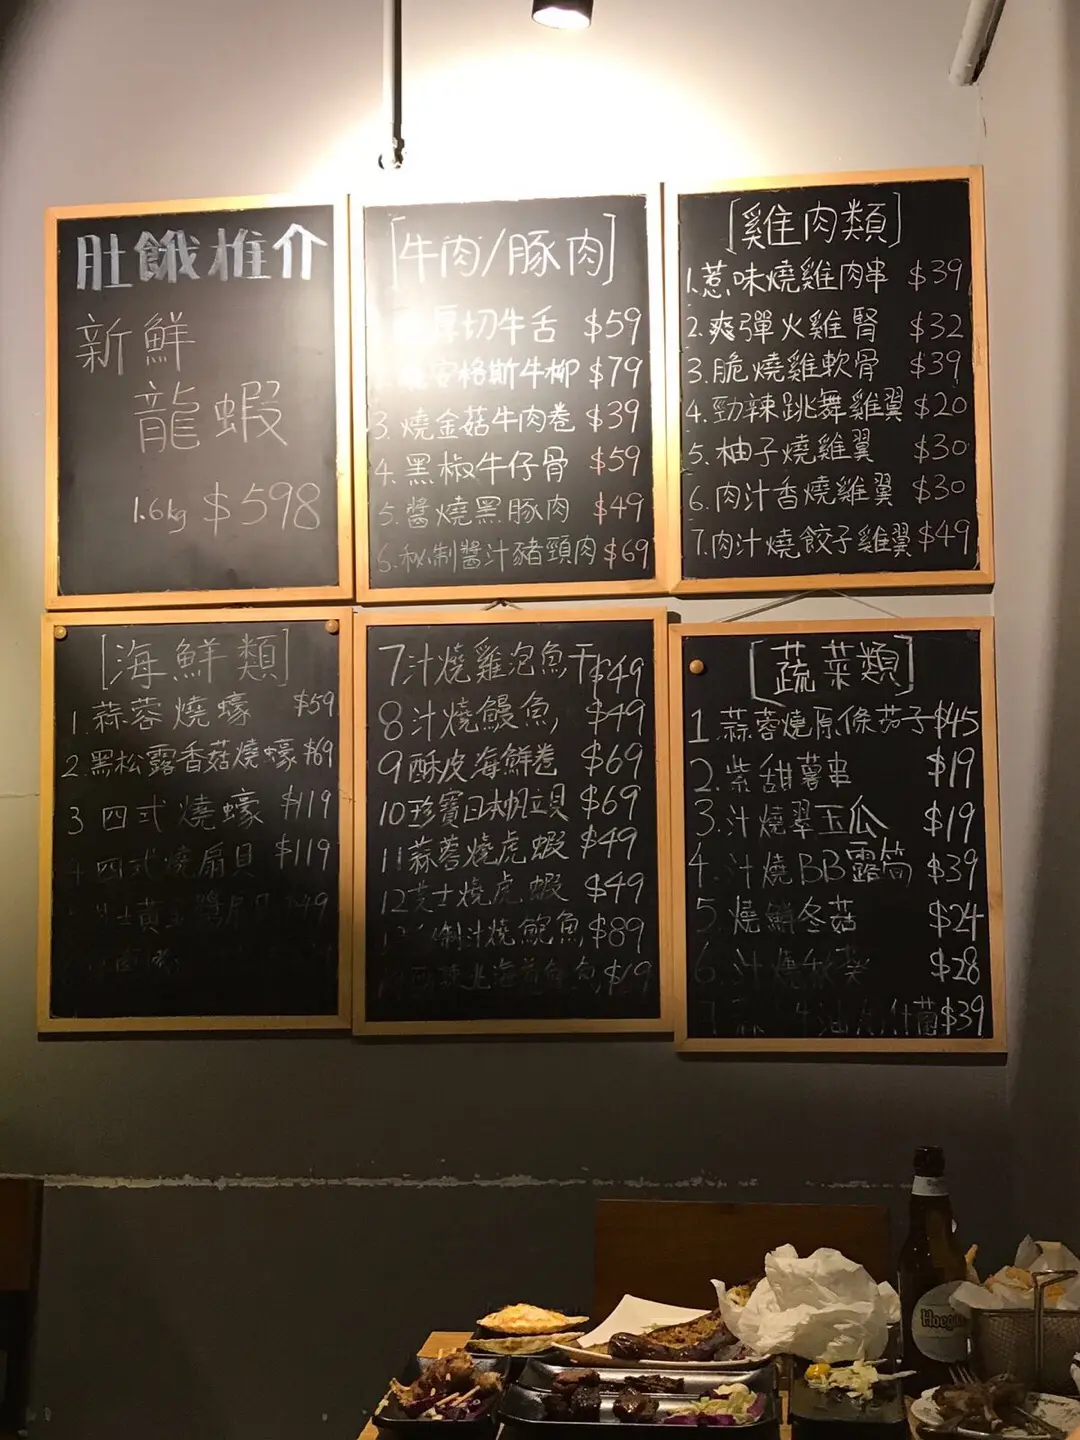 肚餓推介
新鮮
龍蝦
1.6kg $598
[牛肉/豚肉]
厚切牛舌 $59
安格斯牛柳 $79
3. 燒金菇牛肉卷 $39
4. 黑椒牛仔骨 $59
5. 醬燒黑豚肉 $49
6. 秘制醬汁豬頸肉 $69
[雞肉類]
1. 惹味燒雞肉串 $39
2. 爽彈火雞腎 $32
3. 脆燒雞軟骨 $39
4. 勁辣跳舞雞翼 $20
5. 柚子燒雞翼 $30
6. 肉汁香燒雞翼 $30
7. 肉汁燒餃子雞翼 $49
[海鮮類]
1. 蒜蓉燒蠔 $59
2. 黑松露香菇燒蠔 $69
3 四式燒蠔 $119
4 四式燒扇貝 $119
黃金醬 $49
7 汁燒雞泡魚干 $49
8 汁燒鰻魚 $49
9 酥皮海鮮卷 $69
10 珍寶日本帆立貝 $69
11 蒜蓉燒虎蝦 $49
12 芝士燒虎蝦 $49
13 制汁燒鮑魚 $89
北海道 魚 $19
[蔬菜類]
1. 蒜蓉燒原條茄子 $45
2. 紫甜薯串 $19
3. 汁燒翠玉瓜 $19
4. 汁燒BB露筍 $39
5. 燒鮮冬菇 $24
6. 汁燒秋葵 $28
7. 蒜 牛油 $39